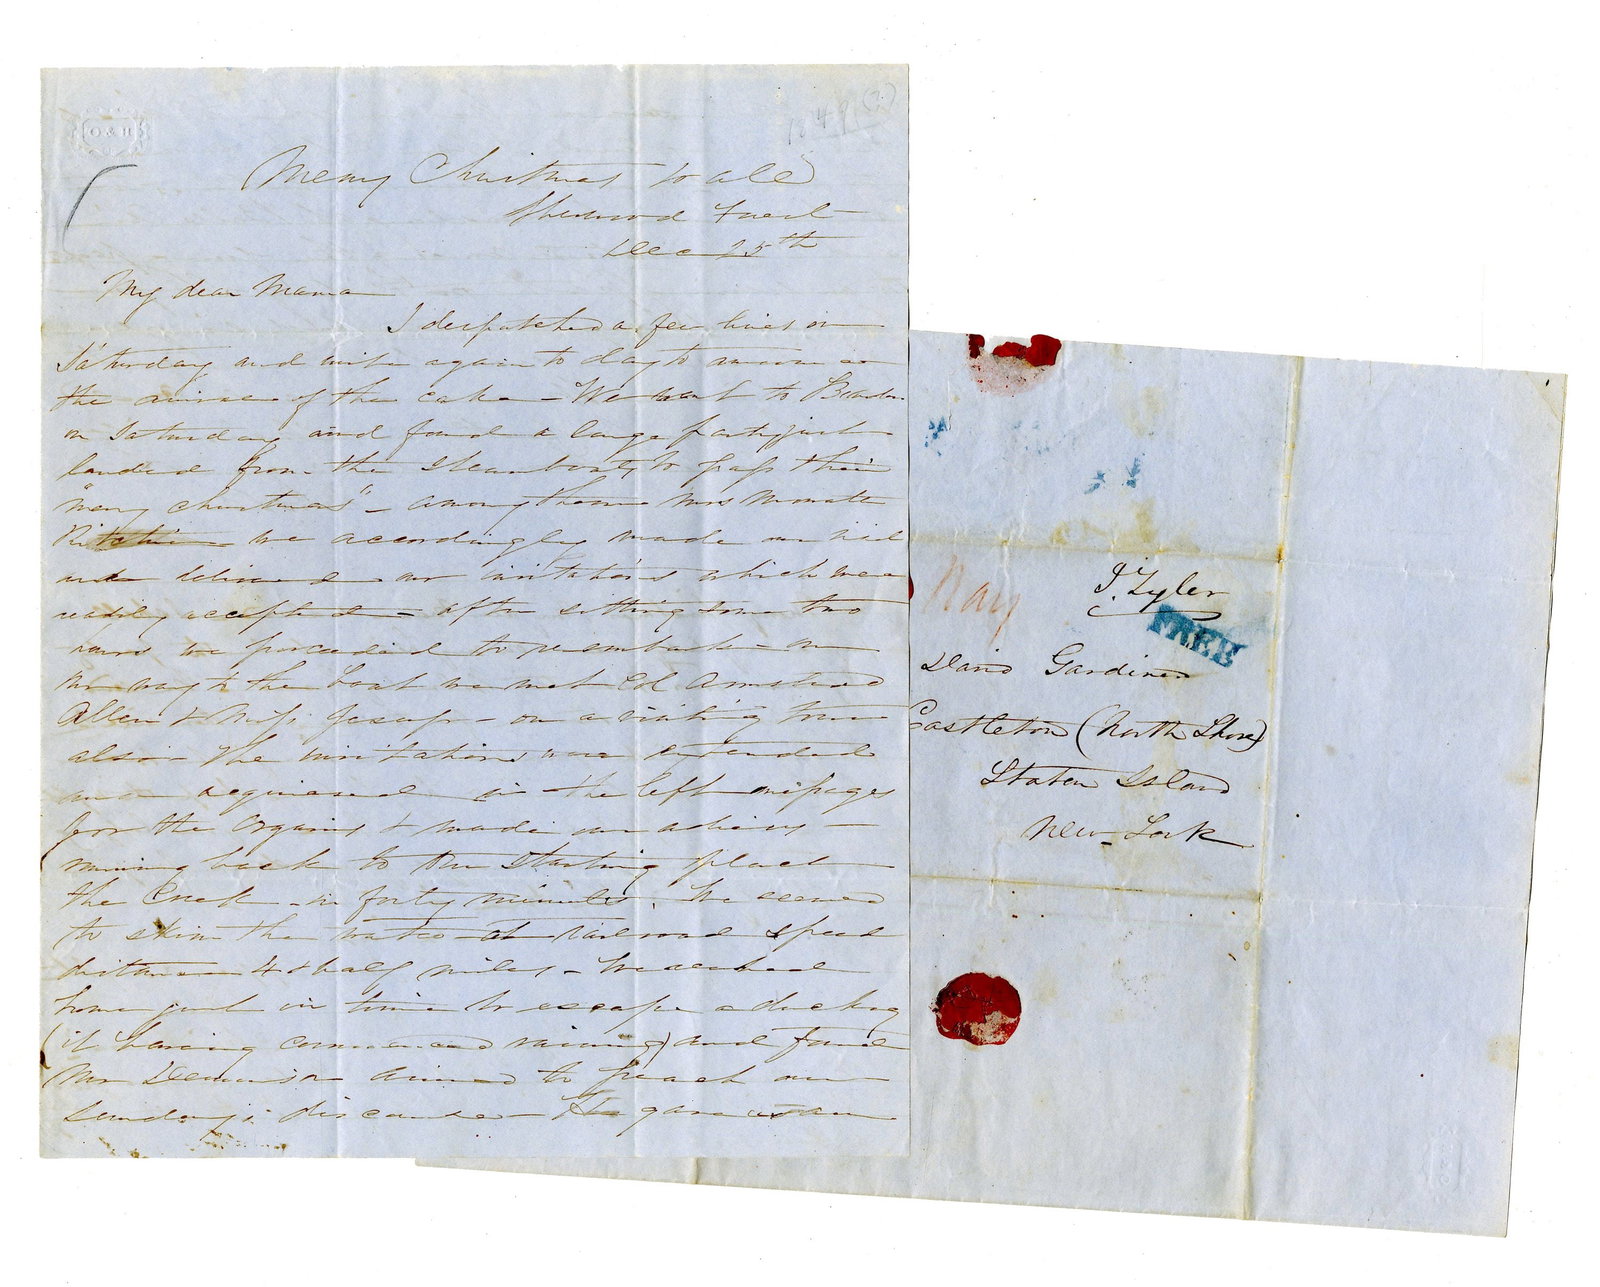 1849(?)
Merry Christmas to all
Sherwood Forest
Dec 25th
My dear Mama
I despatched a few lines on
Saturday and write again to day to
the of the cake - We went to Brandon
on Saturday and found a large party just
landed from the Steamboat to pass their
"merry christmas" - among them Mrs Mowatt
Ritchie we accordingly made our visit
and delivered our invitations which were
readily accepted - after sitting some two
hours we proceeded to reembark - on
our way to the boat we met Col Armstead
Allen & Miss Jesup - on a visiting tour
also - The invitations were extended
and in the left
for the & made our adieus -
running back to our starting place
the Creek - in forty minutes. We seemed
to skim the water at railroad speed
distance 4 & half miles - We reached
home just in time to escape a ducking
(it having commenced raining) and found
Mr Demerson arrived to preach our
Sunday's discourse - He gave us an
J. Tyler
FREE
David Gardiner
Castleton (North Shore)
Staten Island
New-York